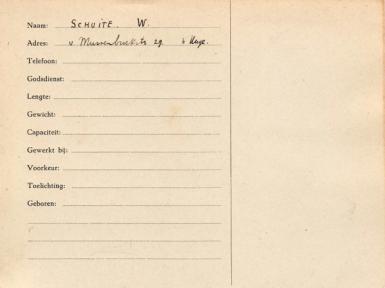 Naam: SCHUITE. W.
Adres: v Mussenbroekstr 29. 's Hage.
Telefoon:
Godsdienst:
Lengte:
Gewicht:
Capaciteit:
Gewerkt bij:
Voorkeur:
Toelichting:
Geboren: